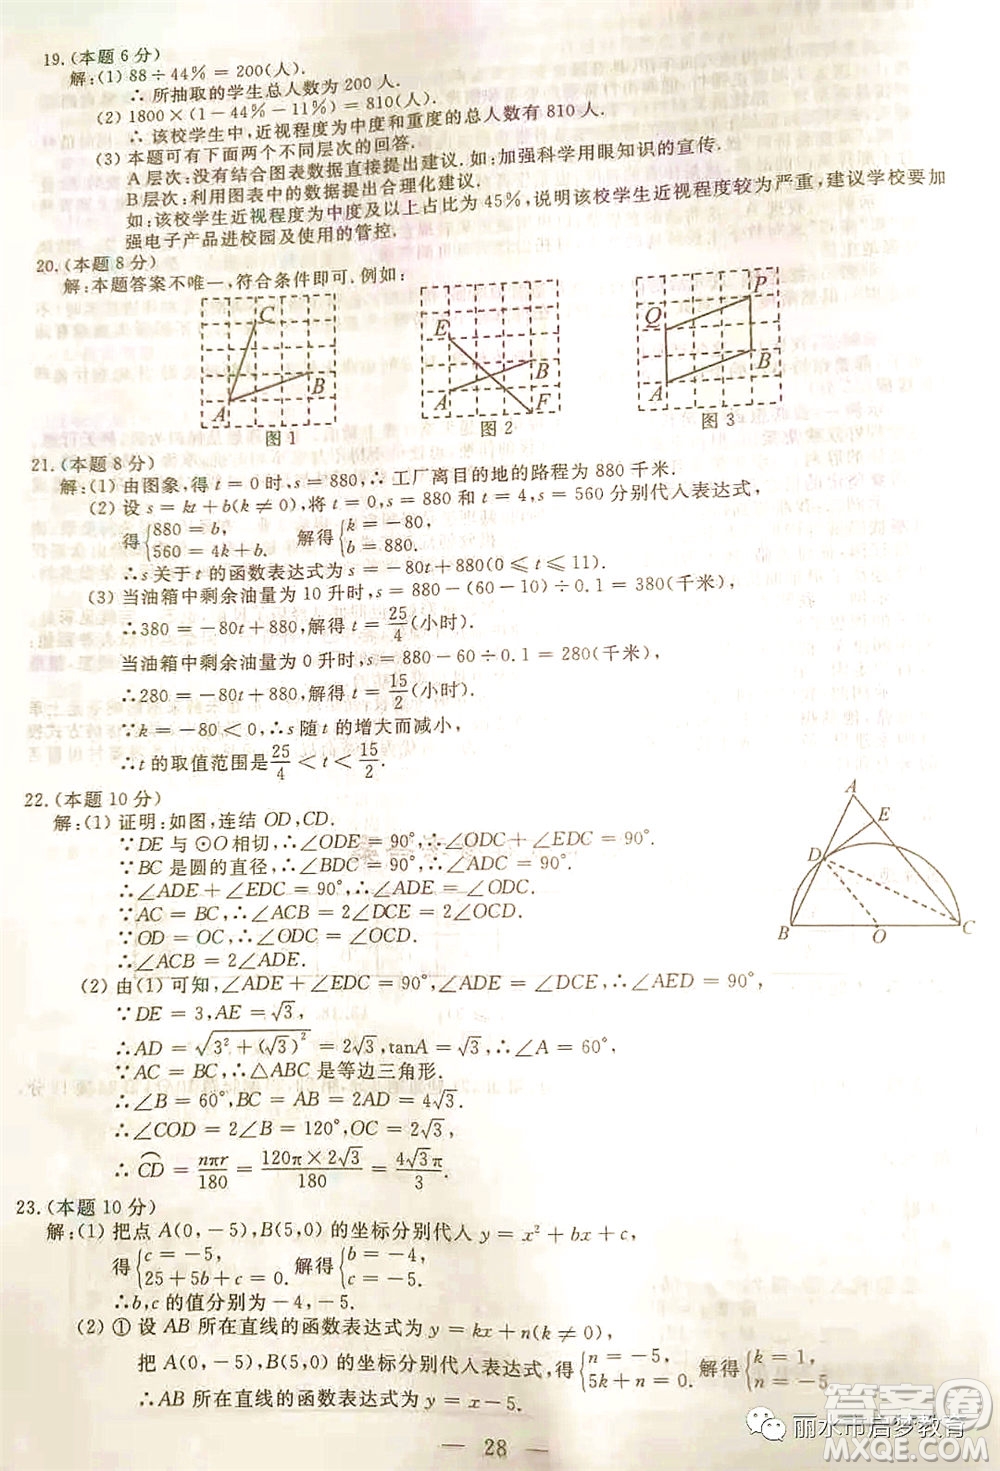 19.(本题6分)
解:(1) 88÷44%=200(人).
∴所抽取的学生总人数为200人.
(2) 1800×(1-44%-11%)=810(人).
∴该校学生中,近视程度为中度和重度的总人数有810人.
(3) 本题可有下面两个不同层次的回答.
A层次:没有结合图表数据直接提出建议.如:加强科学用眼知识的宣传.
B层次:利用图表中的数据提出合理化建议.
如:该校学生近视程度为中度及以上占比为45%,说明该校学生近视程度较为严重,建议学校要加
强电子产品进校园及使用的管控.
20.(本题8分)
解:本题答案不唯一,符合条件即可.例如:
C
A
B
图1
E
A
B
F
图2
P
Q
A
B
图3
21.(本题8分)
解:(1) 由图象,得t=0时,s=880,∴工厂离目的地的路程为880千米.
(2) 设s=kt+b(k≠0),将t=0,s=880和t=4,s=560分别代入表达式,
得{880=b, 560=4k+b. 解得{k=-80, b=880.
∴s关于t的函数表达式为s=-80t+880(0≤t≤11).
(3) 当油箱中剩余油量为10升时,s=880-(60-10)÷0.1=380(千米),
∴380=-80t+880,解得t=25/4(小时).
当油箱中剩余油量为0升时,s=880-60÷0.1=280(千米),
∴280=-80t+880,解得t=15/2(小时).
∵k=-80<0,∴s随t的增大而减小,
∴t的取值范围是25/4<t<15/2.
22.(本题10分)
解:(1) 证明:如图,连结OD,CD.
∵DE与⊙O相切,∴∠ODE=90°,∴∠ODC+∠EDC=90°.
∵BC是圆的直径,∴∠BDC=90°,∴∠ADC=90°.
∴∠ADE+∠EDC=90°,∴∠ADE=∠ODC.
∵AC=BC,∴∠ACB=2∠DCE=2∠OCD.
∵OD=OC,∴∠ODC=∠OCD.
∴∠ACB=2∠ADE.
(2) 由(1)可知,∠ADE+∠EDC=90°,∠ADE=∠DCE,∴∠AED=90°.
∵DE=3,AE=√3,
∴AD=√(3²+(√3)²)=2√3,tanA=√3,∴∠A=60°,
∵AC=BC,∴△ABC是等边三角形.
∴∠B=60°,BC=AB=2AD=4√3.
∴∠COD=2∠B=120°,OC=2√3.
∴⌒CD=nπr/180=120π×2√3/180=4√3π/3.
A
E
D
B
O
C
23.(本题10分)
解:(1) 把点A(0,-5),B(5,0)的坐标分别代入y=x²+bx+c,
得{c=-5, 25+5b+c=0. 解得{b=-4, c=-5.
∴b,c的值分别为-4,-5.
(2) ①设AB所在直线的函数表达式为y=kx+n(k≠0),
把A(0,-5),B(5,0)的坐标分别代入表达式,得{n=-5, 5k+n=0. 解得{k=1, n=-5
∴AB所在直线的函数表达式为y=x-5.
— 28 —
丽水市启梦教育
答案圈
MXQE.COM